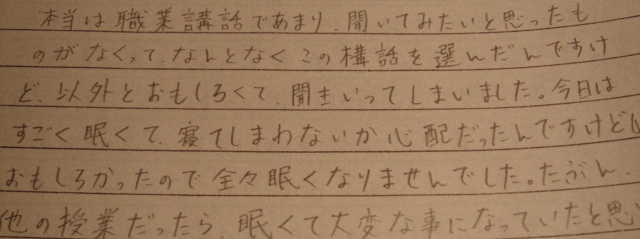 本当は職業講話であまり、聞いてみたいと思ったも
のがなくって、なんとなくこの構話を選んだんですけ
ど、以外とおもしろくて、聞きいってしまいました。今日は
すごく眠くて、寝てしまわないか心配だったんですけど、
おもしろかったので全々眠くなりませんでした。たぶん、
他の授業だったら、眠くて大変な事になっていたと思